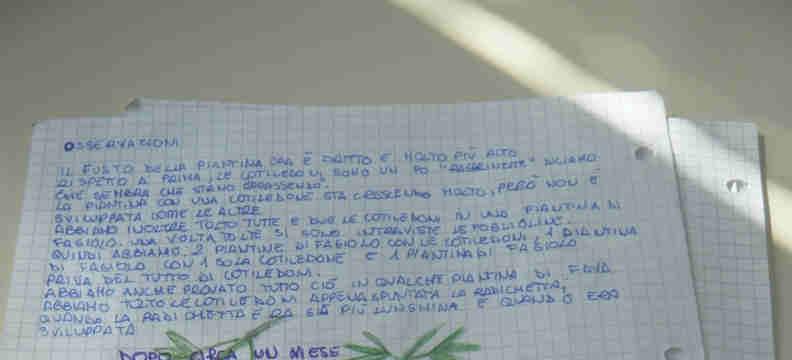 OSSERVAZIONI
IL FUSTO DELLA PIANTINA ORA È DRITTO E MOLTO PIÙ ALTO
RISPETTO A PRIMA, LE COTILEDONI SONO UN PO "RAGGRINZITE" DICIAMO
CHE SEMBRA CHE STIANO APPASSENDO.
LA PIANTINA CON UNA COTILEDONE STA CRESCENDO MOLTO, PERÒ NON È
SVILUPPATA COME LE ALTRE
ABBIAMO INOLTRE TOLTO TUTTE E DUE LE COTILEDONI IN UNA PIANTINA DI
FAGIOLO. UNA VOLTA TOLTE SI SONO INTRAVISTE LE FOGLIOLINE.
QUINDI ABBIAMO 2 PIANTINE DI FAGIOLO CON LE COTILEDONI, 1 PIANTINA
DI FAGIOLO CON 1 SOLA COTILEDONE E 1 PIANTINA DI FAGIOLO
PRIVA DEL TUTTO DI COTILEDONI.
ABBIAMO ANCHE PROVATO TUTTO CIÒ IN QUALCHE PIANTINA DI FAVA.
ABBIAMO TOLTO LE COTILEDONI APPENA SPUNTATA LA RADICHETTA,
QUANDO LA RADICHETTA ERA GIÀ PIÙ LUNGHINA E QUANDO ERA
SVILUPPATA
DOPO CIRCA UN MESE